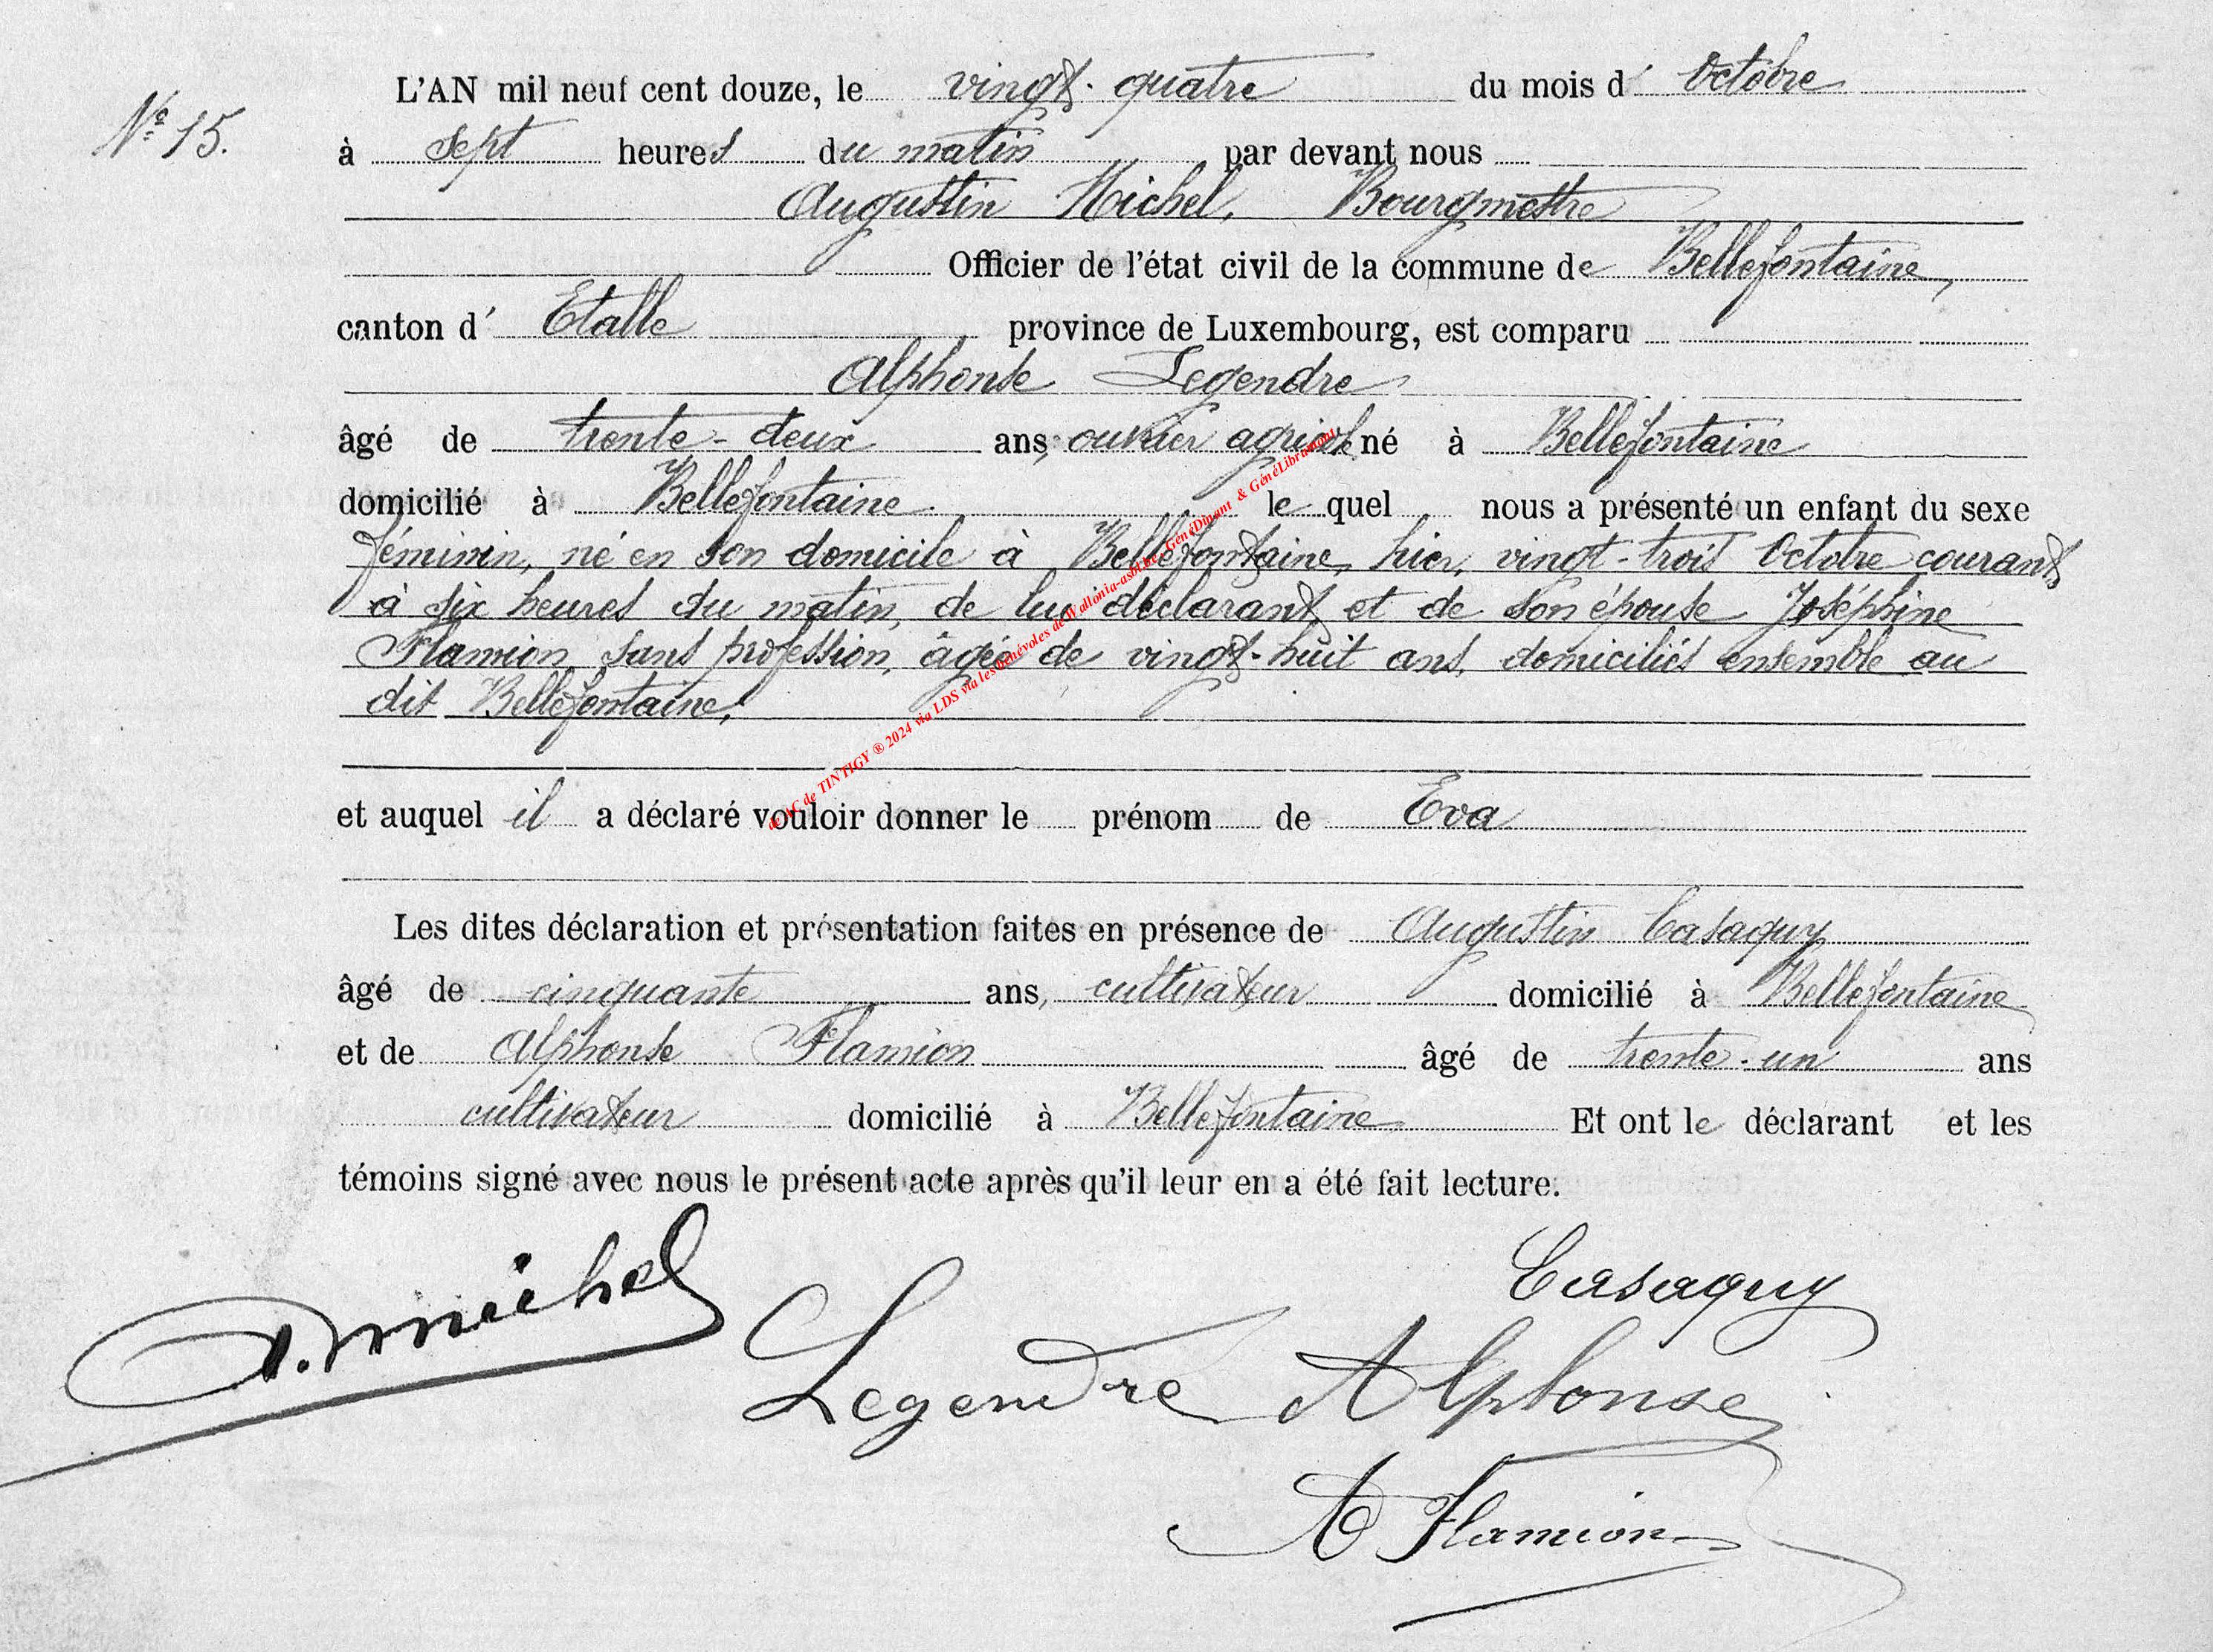 N° 15.
L'AN mil neuf cent douze, le vingt-quatre du mois d' Octobre
à sept heures du matin par devant nous
Augustin Michel, Bourgmestre
Officier de l'état civil de la commune de Bellefontaine,
canton d' Etalle province de Luxembourg, est comparu
Alphonse Legendre
âgé de trente-deux ans, ouvrier agricole né à Bellefontaine
domicilié à Bellefontaine le quel nous a présenté un enfant du sexe
féminin, né en son domicile à Bellefontaine, hier, vingt-trois Octobre courant
à six heures du matin, de lui déclarant, et de son épouse Joséphine
Flamion, sans profession, âgée de vingt-huit ans, domiciliés ensemble au
dit Bellefontaine.
et auquel il a déclaré vouloir donner le prénom de Eva
Les dites déclaration et présentation faites en présence de Augustin Casaquy
âgé de cinquante ans, cultivateur domicilié à Bellefontaine
et de Alphonse Flamion âgé de trente-un ans
cultivateur domicilié à Bellefontaine Et ont le déclarant et les
témoins signé avec nous le présent acte après qu'il leur en a été fait lecture.
A. Michel
Casaquy
Legendre Alphonse
A Flamion
de AC de TINTIGY ® 2024 via LDS via les bénévoles de Wallonia-asbl.be, GénéDinant & GénéLibramont